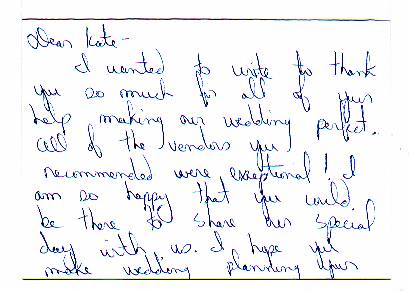 Dear Kate-
I wanted to write to thank
you so much for all of your
help making our wedding perfect.
All of the vendors you
recommended were exceptional! I
am so happy that you could
be there to share our special
day with us. I hope you
make wedding planning your